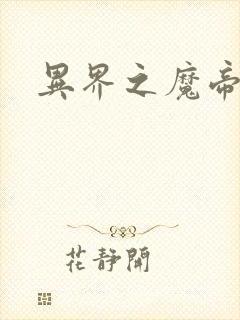 異界之魔帝
花靜開